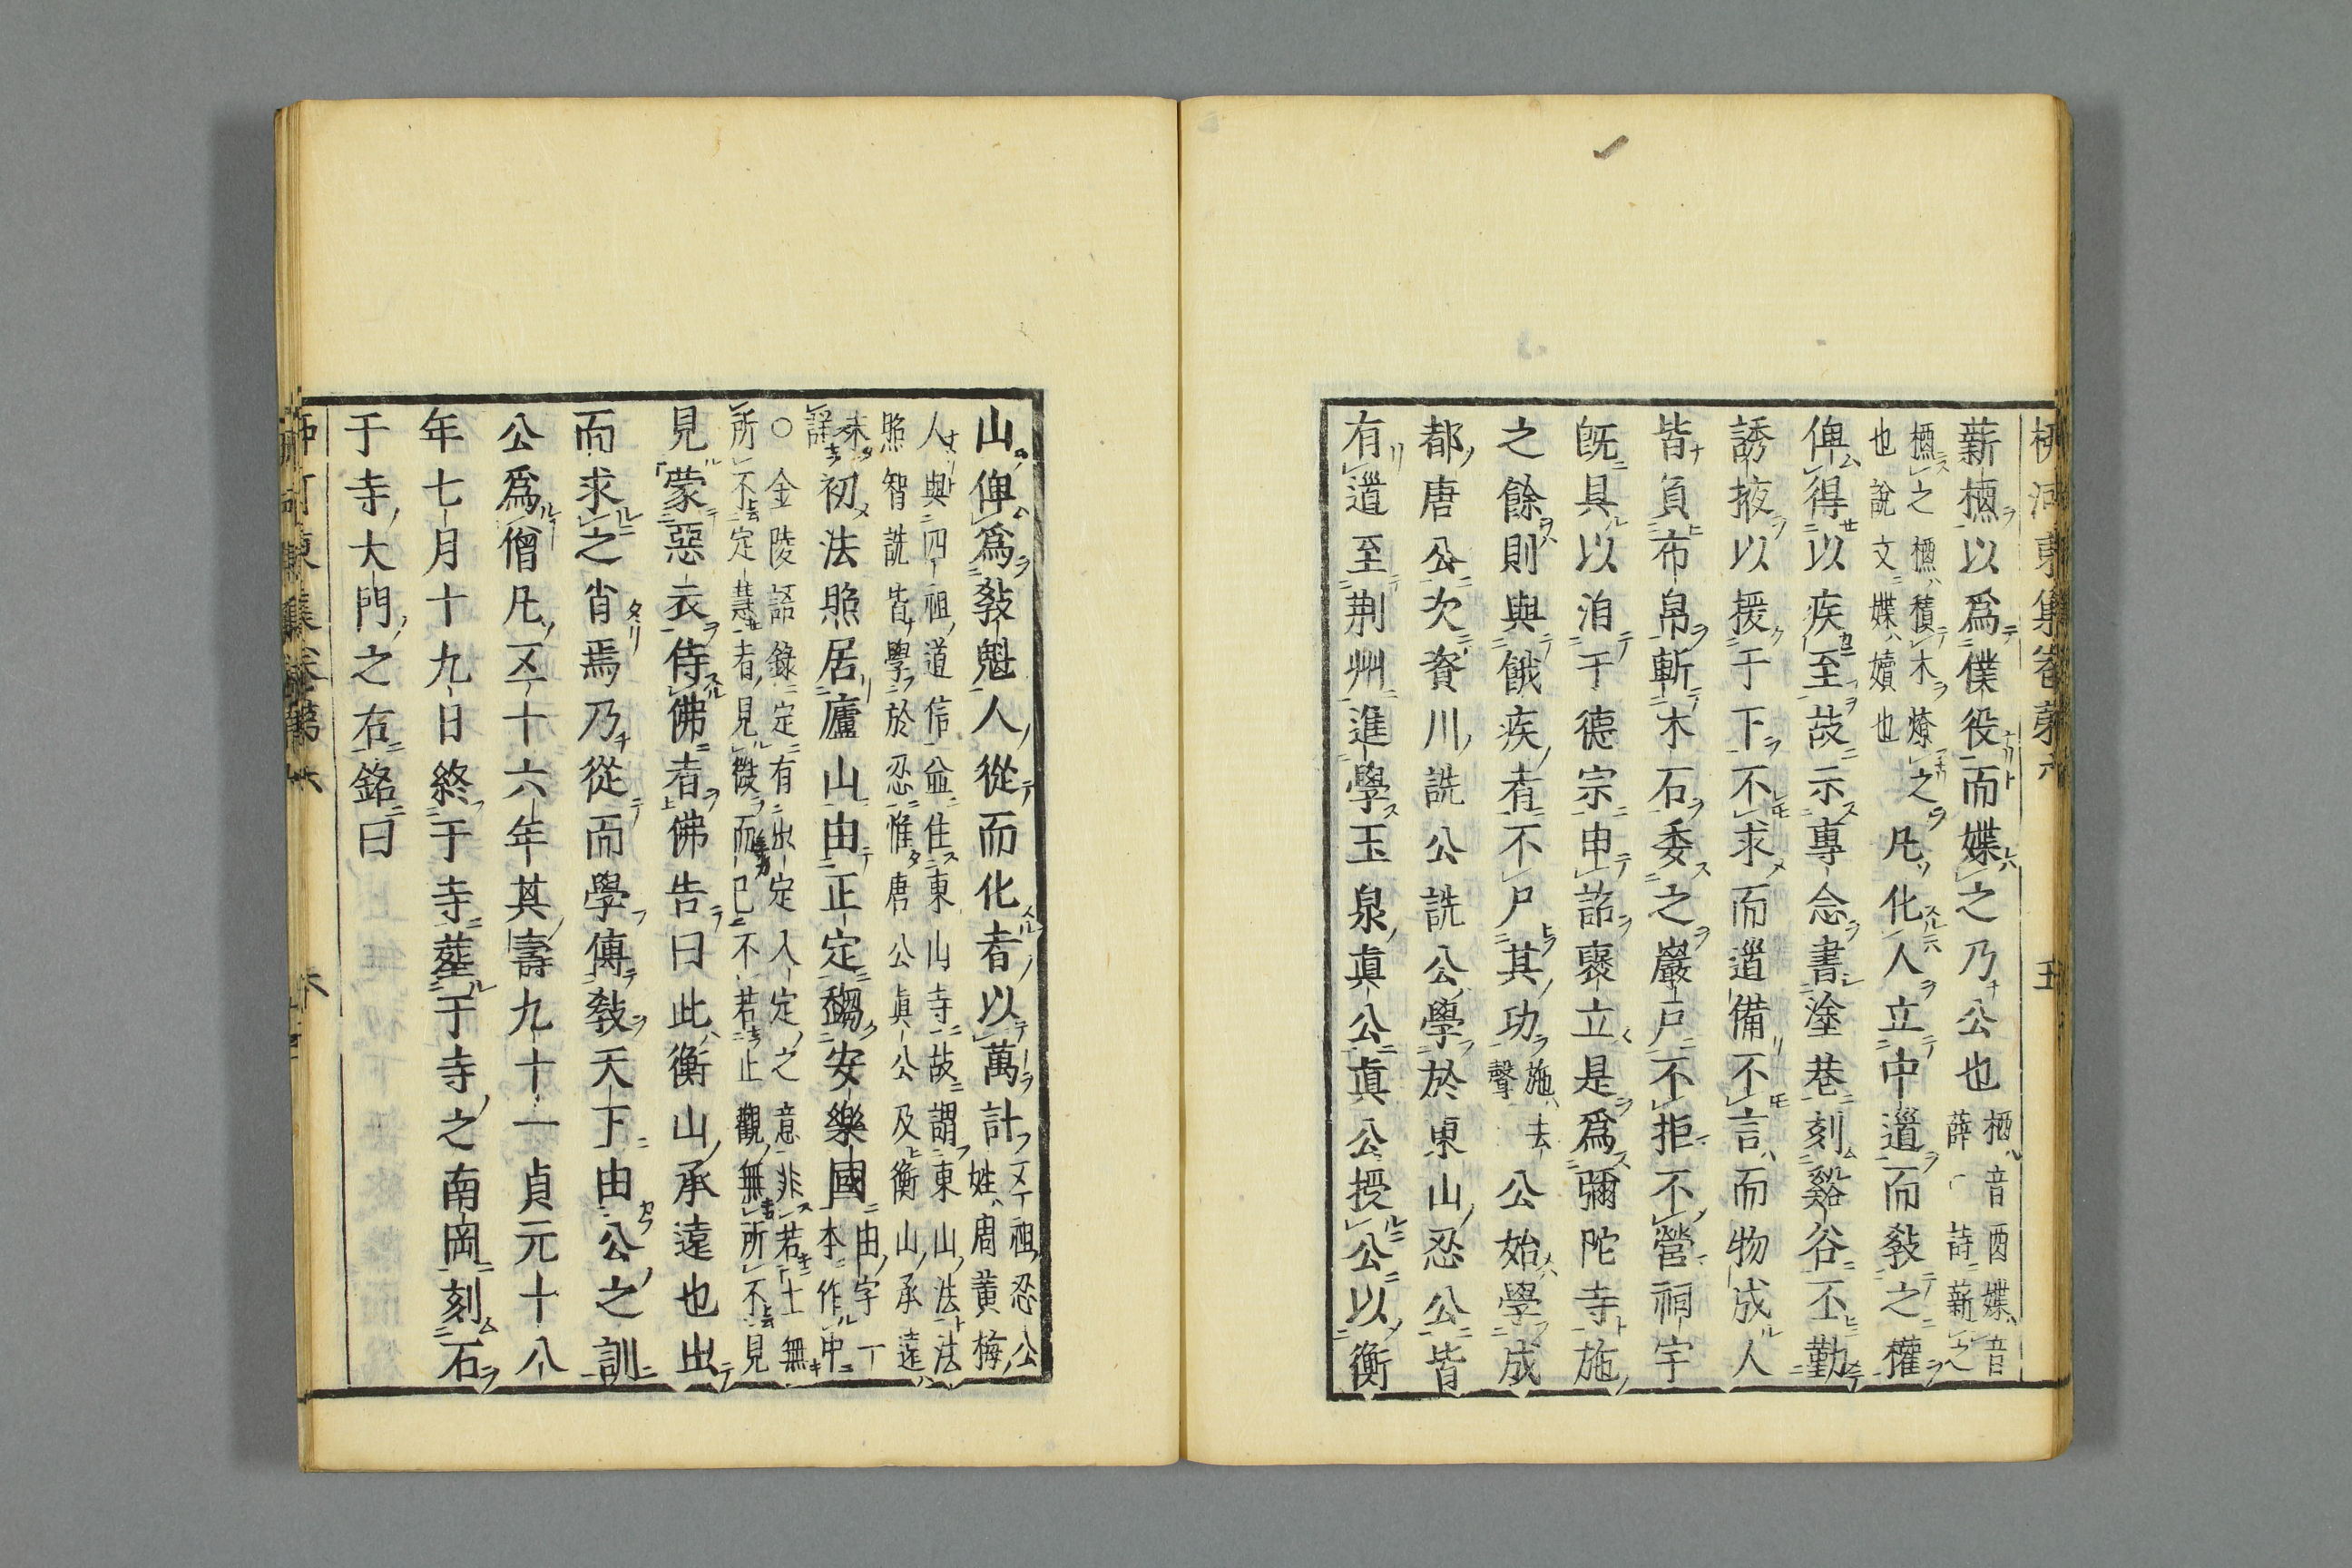 栁河東集卷第六 五
薪槱以爲僕役而媟之乃公也 槱音酉媟音
薛 詩薪之
槱之槱積木燎之
也說文媟嬻也 凡化人立中道而敎之權
俾得以疾至故示專念書塗巷刻谿谷丕勤
誘掖以援于下不求而道備不言而物成人
皆負布帛斬木石委之巖戶不拒不營祠宇
旣具以洎于德宗申詔褒立是爲彌陀寺施
之餘則與餓疾者不尸其功 施去
聲 公始學成
都唐公次資川詵公詵公學於東山忍公皆
有道至荆州進學玉泉真公真公授公以衡
山俾爲敎魁人從而化者以萬計 五祖忍公
姓周黃梅
人與四祖道信並住東山寺故謂東山法法
照智詵皆學於忍惟唐公眞公及衡山承遠
未
詳 初法照居廬山由正定趨安樂國 由字一
本作中
○金陵語錄定有出定入定之意非若土無
所不定慧者見徴而已不若止觀無所不見
見蒙惡衣侍佛者佛告曰此衡山承遠也出
而求之肖焉乃從而學傳敎天下由公之訓
公爲僧凡五十六年其壽九十一貞元十八
年七月十九日終于寺葬于寺之南岡刻石
于寺大門之右銘曰